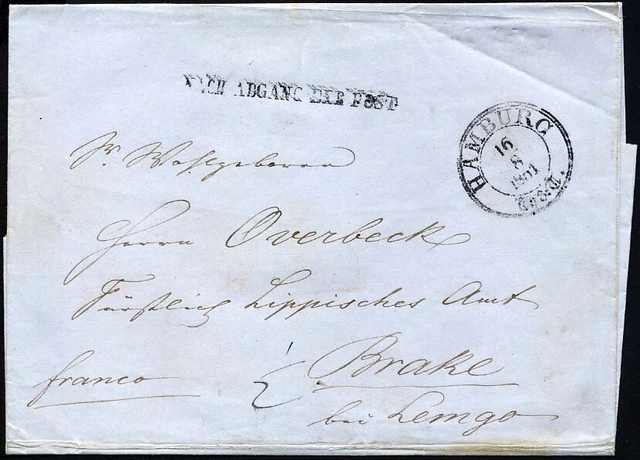 NACH ABGANG DER POST
HAMBURG
16
8
1851
Sr Wohlgeboren
Herrn Overbeck
Fürstlich Lippisches Amt
Brake
franco
bei Lemgo